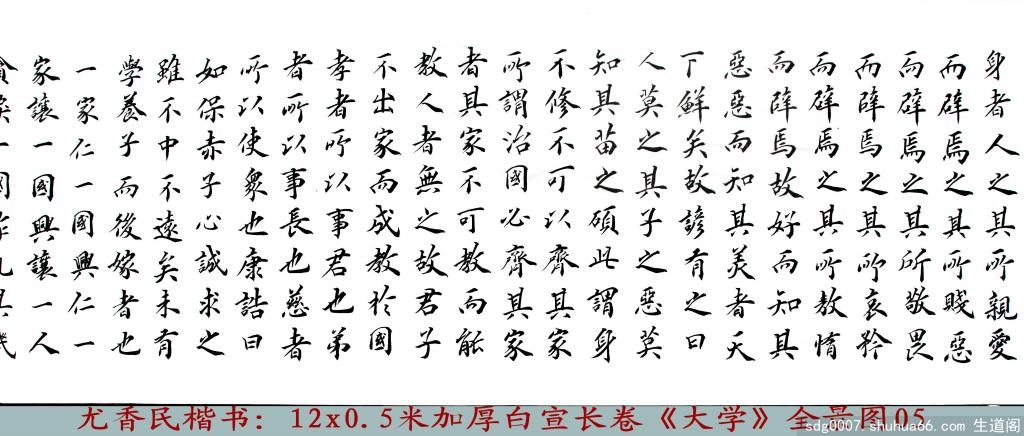 身者人之其所親愛
而辟焉之其所賤惡
而辟焉之其所敬畏
而辟焉之其所哀矜
而辟焉之其所敖惰
而辟焉故好而知其
惡惡而知其美者天
下鮮矣故諺有之曰
人莫之其子之惡莫
知其苗之碩此謂身
不修不可以齊其家
所謂治國必齊其家
者其家不可教而能
教人者無之故君子
不出家而成教於國
孝者所以事君也弟
者所以事長也慈者
所以使衆也康誥曰
如保赤子心誠求之
雖不中不遠矣未有
學養子而後嫁者也
一家仁一國興仁一
家讓一國興讓一人
尤香民楷书：12x0.5米加厚白宣长卷《大学》全景图05
sdg0007.shuhua66.com 生道阁